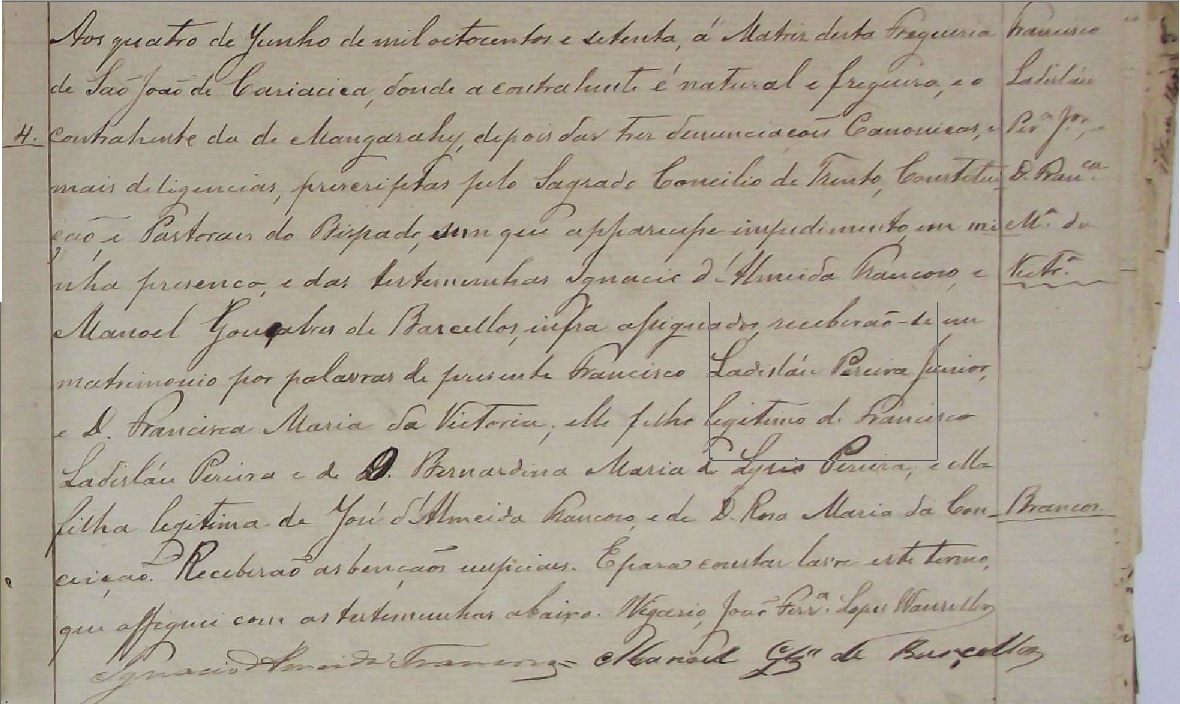 Aos quatro de Junho de mil oitocentos e setenta, á Matriz desta Freguesia
de São João de Cariacica, donde a contrahente é natural e fregueza, e o
contrahente da de Mangarahy, depois das tres denunciacoēs Canonicas, e
mais diligencias, prescriptas pelo Sagrado Concilio de Trento, Constitui
ção, e Pastoraes do Bispado, sem que apparecesse impedimento, em mi
nha presença, e das testemunhas Ignacio d'Almeida Francoso, e
Manoel Gonçalves de Barcellos, infra assignados, receberão-se em
matrimonio por palavras de presente Francisco Ladisláu Pereira Junior,
e D. Francisca Maria da Victoria; elle filho legitimo de Francisco
Ladisláu Pereira e de D. Bernardina Maria de Pereira, e ella
filha legitima de José d'Almeida Francoso, e de D. Rosa Maria da Con-
ceição. Receberão as bençãos nupciais. E para constar lavrei este termo,
que assignei com as testemunhas abaixo. Vigario, João Ferr.ª Lopes
Ignacio d'Almeida Francoso = Manoel Glz de Barcellos
4.
Francisco
Ladisláu
Per.ª Jr.
D. Fran.ca
M.ª da
Victr.ª
Brancos